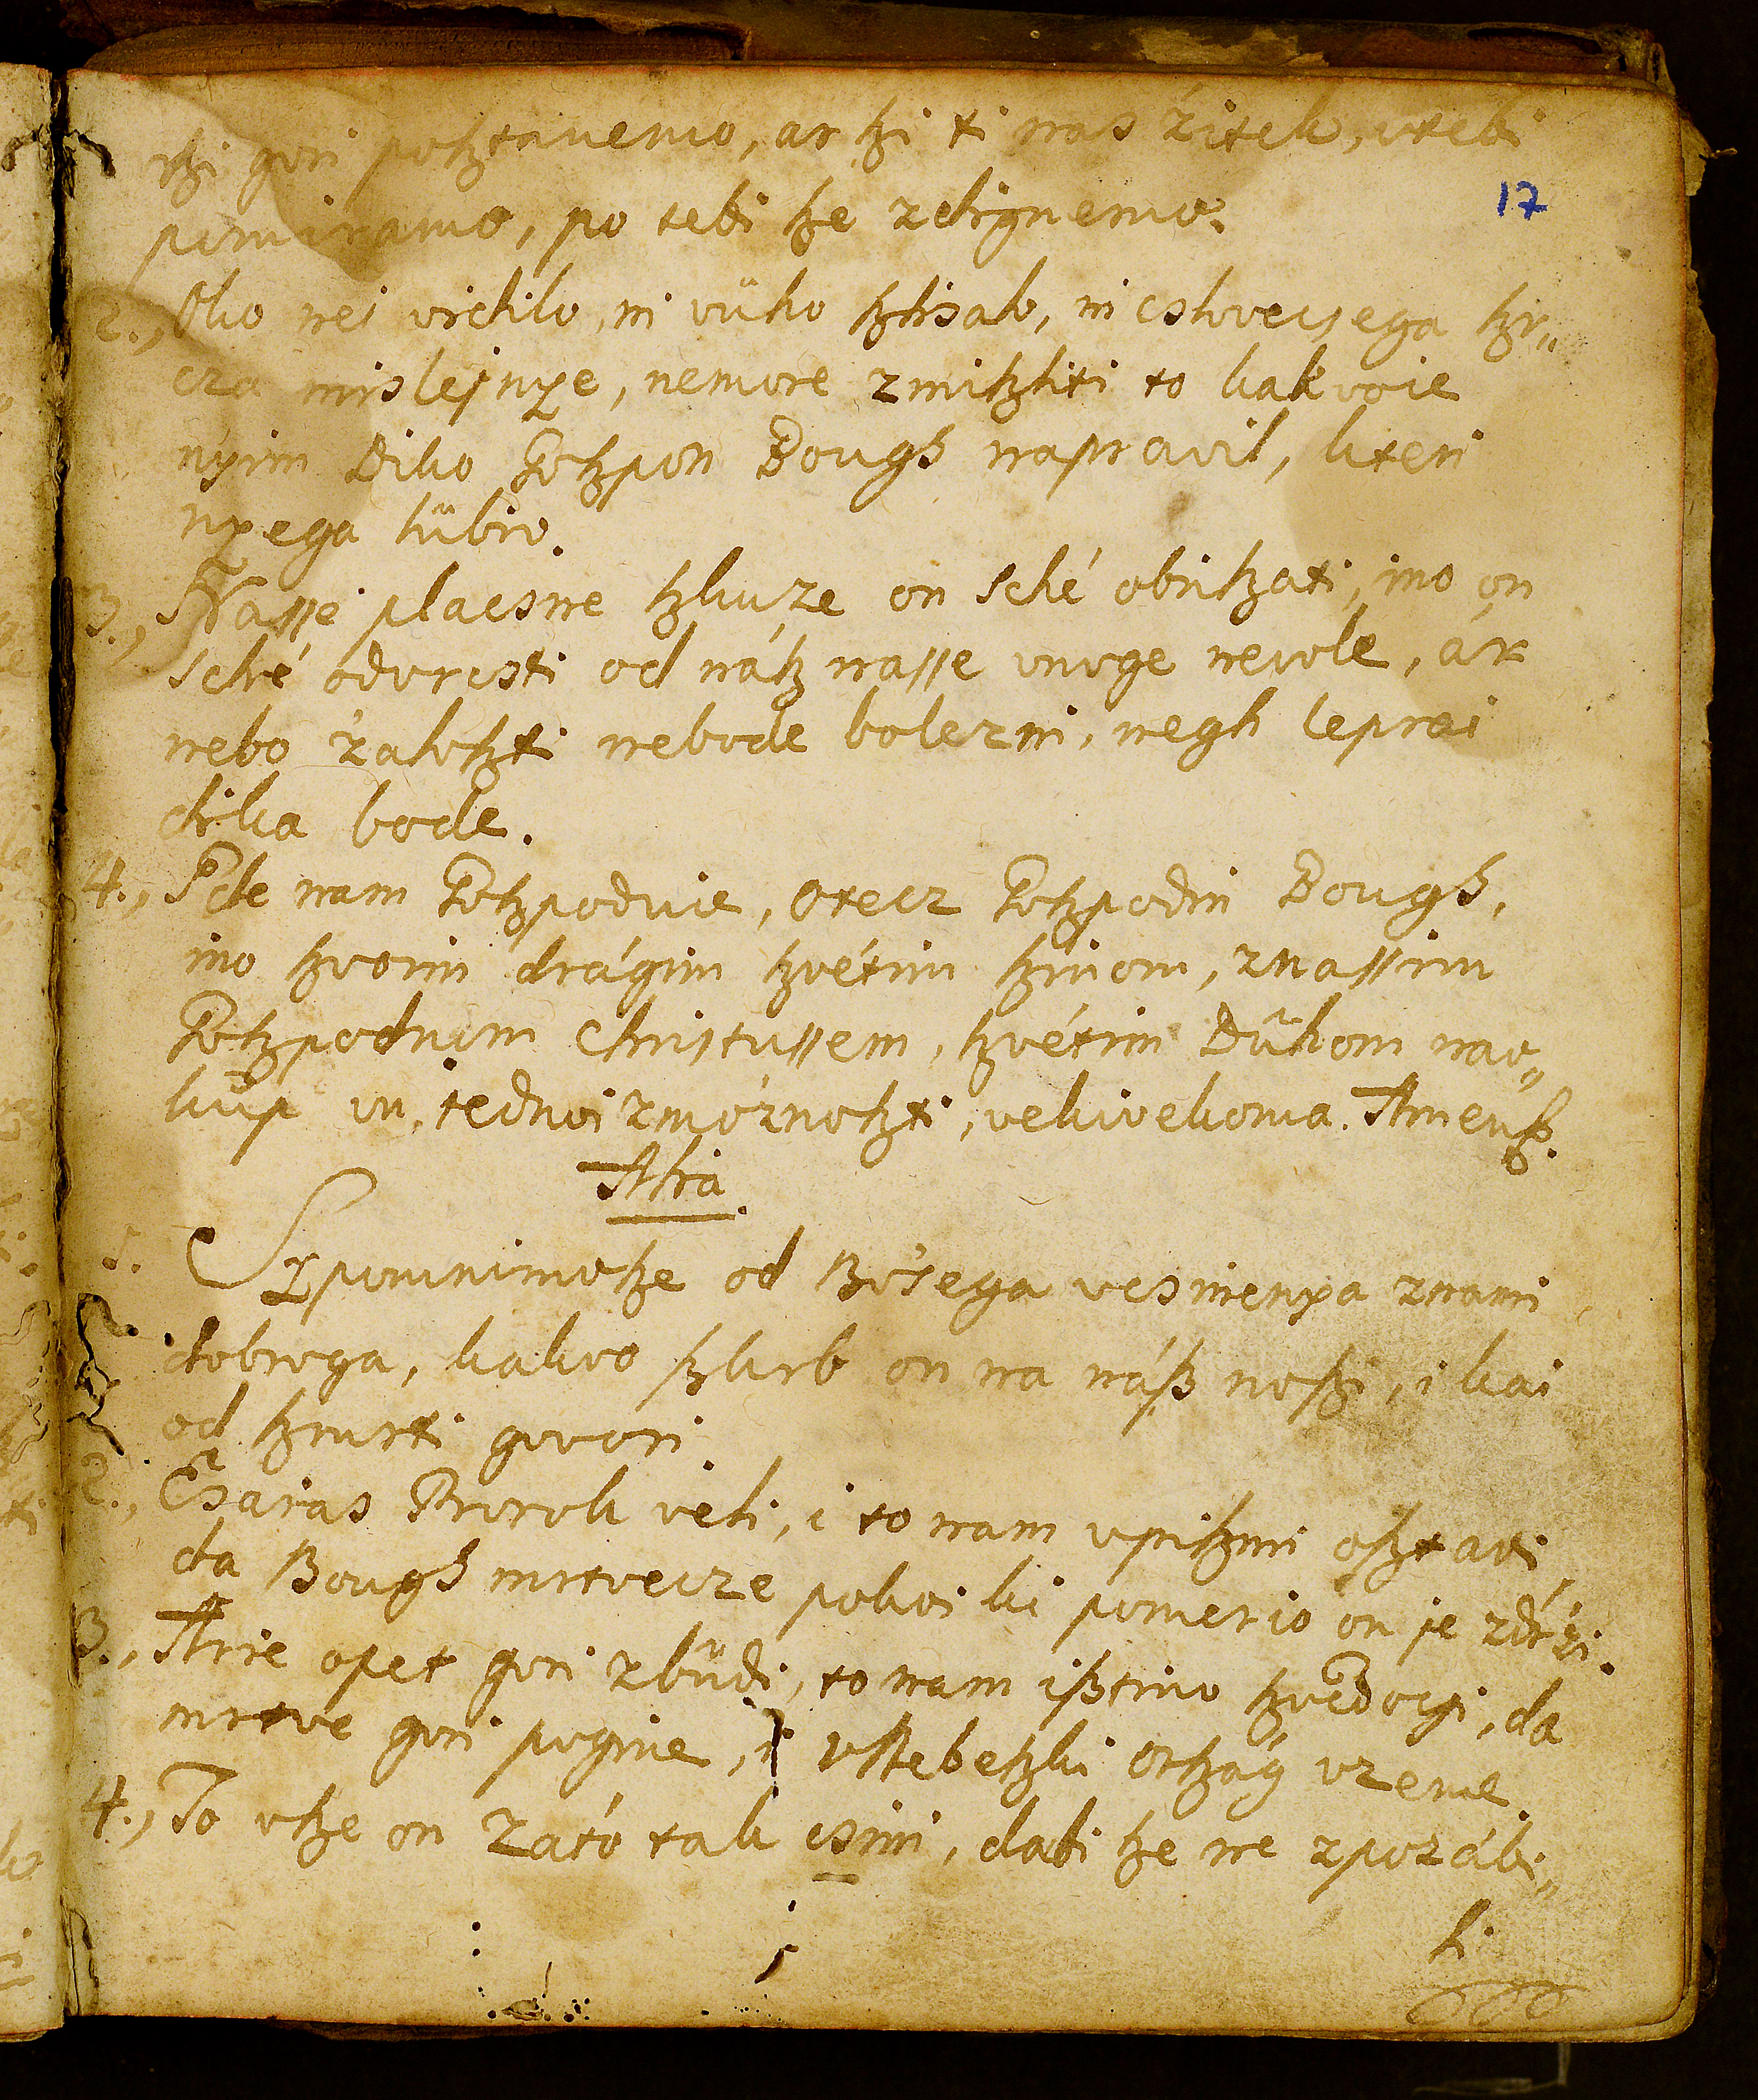 tßi gori poßtanemo, ar ßi ti nas žitek, vtebi
17
pomiramo, po tebi ße zdignemo.
2., Oko nei vidilo, ni vüho ßlisalo, ni cslovecsega ßr„
cza mislejnye, nemore zmißliti to kakvoie
nyim Diko Goßpon Bough napravil, kteri
nyega lübio.
3., Nasse placsne ßkuze on sché obrißati, ino on
sché odvrcsti od náß nasse vnoge nevole, ár
nebo žaloßti nebode bolezni, negh lepsai
dika bode.
4., Pde nam Goßpodnie, Otecz Goßpodin Bough,
ino ßvoim drágim ßvétim ßinom, znassim
Goßpodnom Christussem, ßvétim Dühom nav„
küp vu, iednoi zmóznoßti, vekivekoma. Amenß.
Alia
1. Szpomnimoße od Bosega vcsinenya znami
dobroga, kakvo ßkrb on na náß noßi, i kai
od ßmrti govori
2., Esaias Prorok veli, i to nam vpißmi oßtavi,
da Bough mrtvecze pokoi ki pomerjo on je zdrži.
3., Arie opet gori zbüdi, to nam ißtino ßvedocsi, da
mrtve gori pogine, i vNebeßki Orßág vzeme.
4., To vße on zató tak csini, dabi ße ne zpozábi„
l.